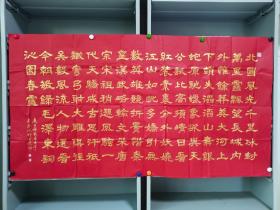 北國風光千里冰封
萬里雪飄望長城内
外惟餘莽莽大河上
下頓失滔滔山舞銀
蛇原馳蠟象欲與天
公試比高須晴日看
紅裝素裹分外妖嬈
江山如此多嬌引無
數英雄競折腰惜秦
皇漢武略輸文采唐
宗宋祖稍遜風騷一
代天驕成吉思汗祇
識彎弓射大雕俱往
矣數風流人物還看
今朝敬錄毛澤東詞
沁園春雪